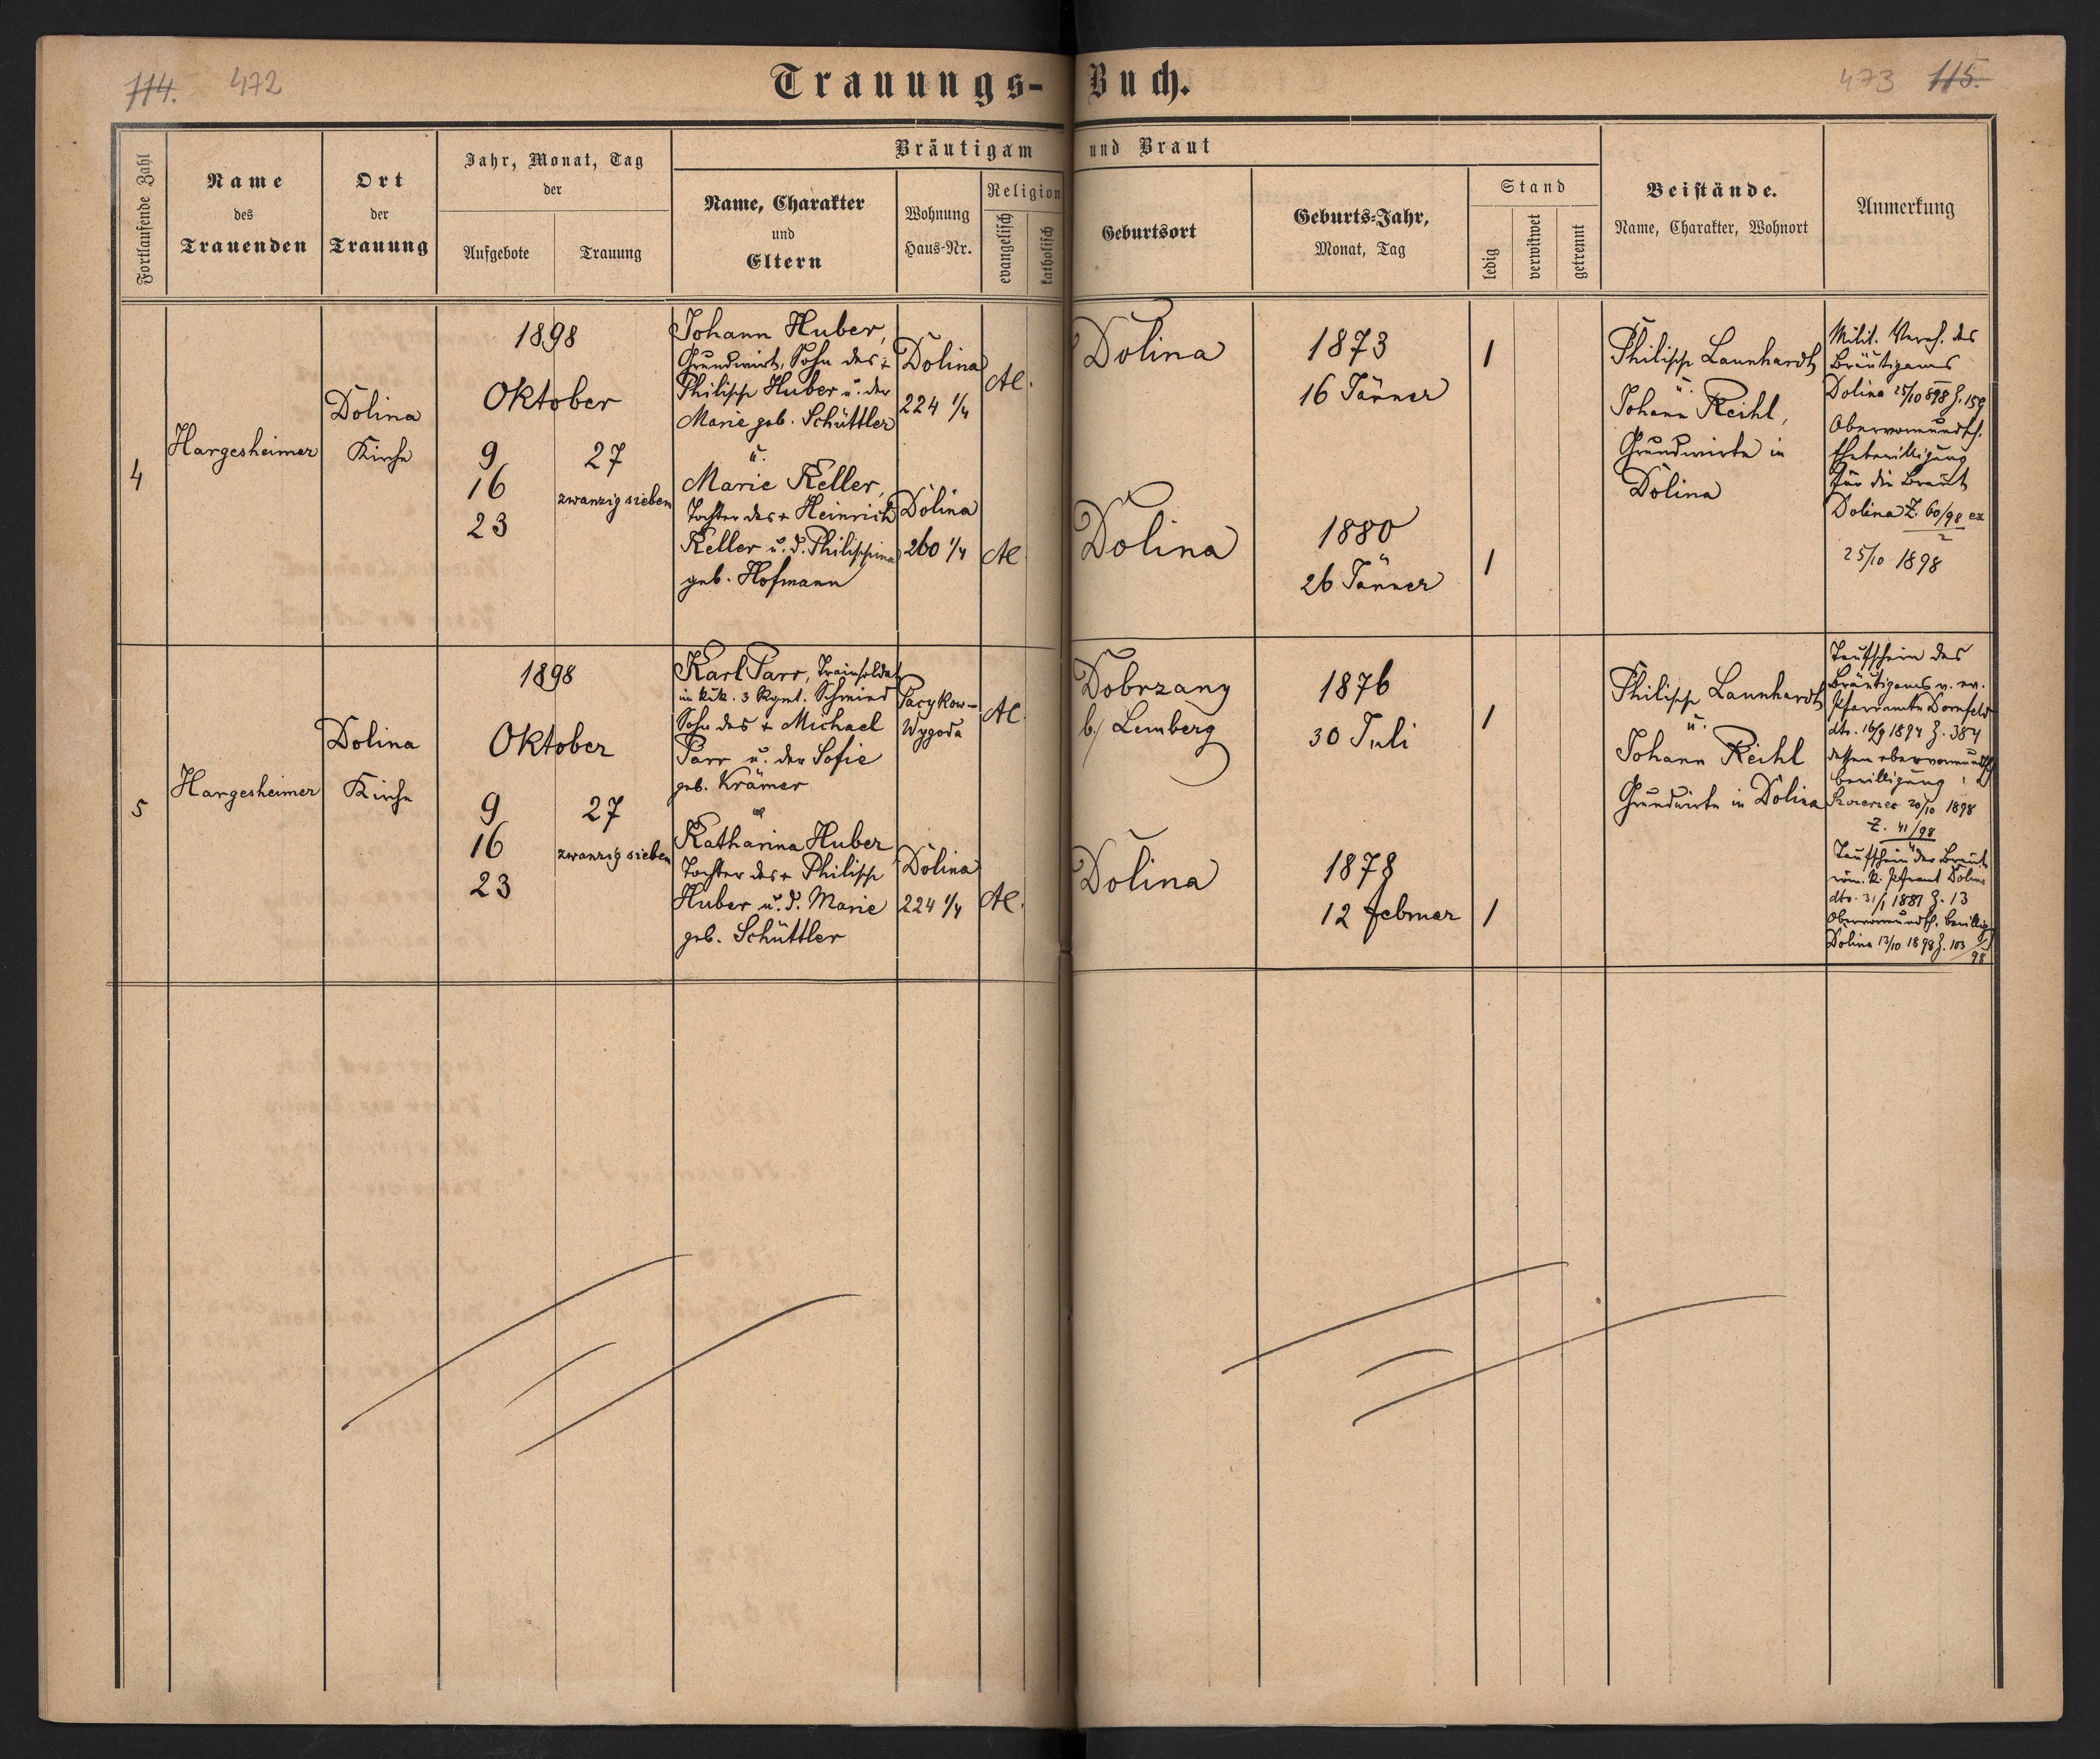 114. 472
Trauungs-Buch.
473 115.
Fortlaufende Zahl
Name
des
Trauenden
Ort
der
Trauung
Jahr, Monat, Tag
der
Aufgebote
Trauung
Bräutigam und Braut
Name, Charakter
und
Eltern
Wohnung
Haus-Nr.
Religion
evangelisch
katholisch
Geburtsort
Geburts-Jahr,
Monat, Tag
Stand
ledig
verwitwet
getrennt
Beistände.
Name, Charakter, Wohnort
Anmerkung
4
Hargesheimer
Dolina
Kirche
1898
Oktober
9
16
23
27
zwanzig sieben
Johann Huber,
Grundwirt, Sohn des +
Philipp Huber u. der
Marie geb. Schüttler
u.
Marie Keller,
Tochter des + Heinrich
Keller u. d. Philippina
geb. Hofmann
Dolina
224 1/4
Dolina
260 1/4
AC.
AC
Dolina
Dolina
1873
16 Jänner
1880
26 Jänner
1
1
Philipp Launhardt
u.
Johann Reihl,
Grundwirte in
Dolina
Milit. des
Bräutigams
Dolina 25/10 898 Z. 159
Obervormundsch.
Ehebewilligung
für die Braut
Dolina Z. 60/98 ex
2
25/10 1898
5
Hargesheimer
Dolina
Kirche
1898
Oktober
9
16
23
27
zwanzig sieben
Karl Parr, Trainsoldat
im k.u.k. 3 Rgmt. Schmied
Sohn des + Michael
Parr u. der Sofie
geb. Krämer
Katharina Huber
Tochter des + Philipp
Huber u. d. Marie
geb. Schüttler
Pacykow-
Wygoda
Dolina
224 1/4
AC
AC.
Dobrzany
b/ Lemberg
Dolina
1876
30 Juli
1878
12 Februar
1
1
Philipp Launhardt
u.
Johann Reihl
Grundwirte in Dolina
Taufschein des
Bräutigams v. ev.
Pfarramte Dornfeld
dto. 16/9 1894 Z. 384
dessen obervormundsch
bewilligung
Szczerzec 20/10 1898
Z. 41/98
Taufschein der Braut
röm. k. Pframt Dolina
dto. 31/1 1881 Z. 13
Obervormundsch. bewillig
Dolina 13/10 1898 Z. 103
98